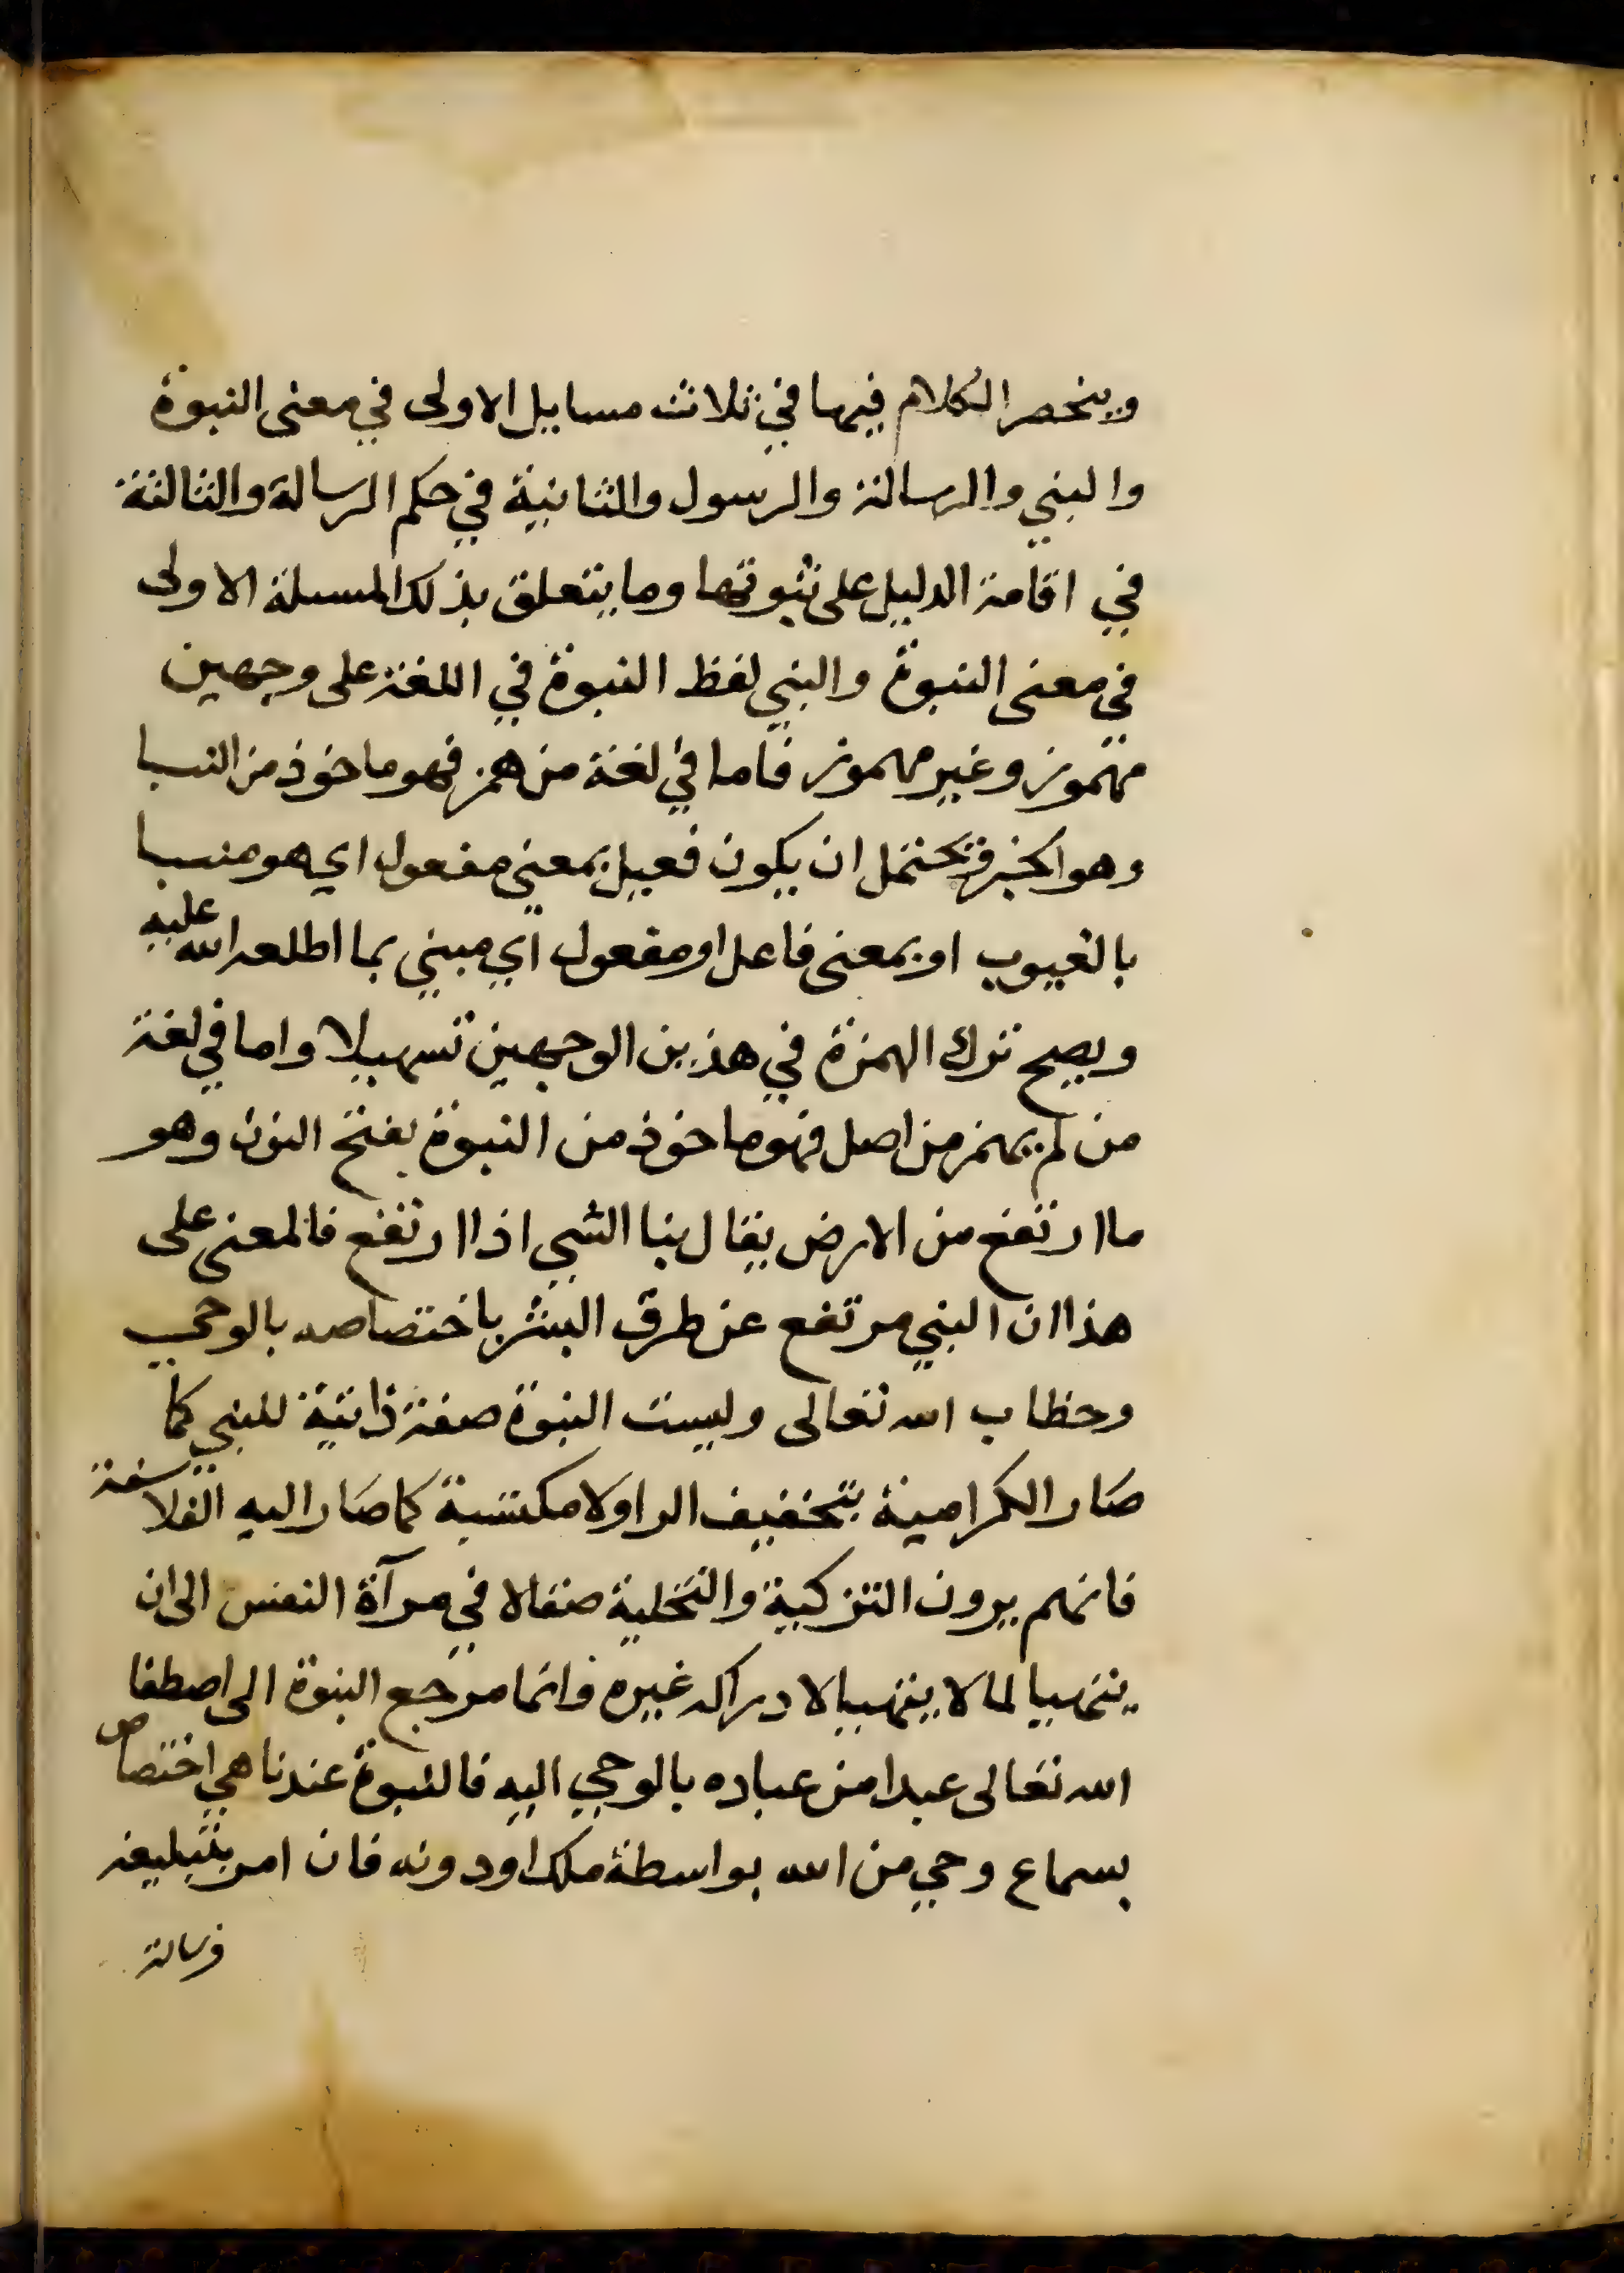 وينحصر الكلام فيها في ثلاث مسايل الاولى في معنى النبوة
والنبي والرسالة والرسول والثانية في حكم الرسالة والثالثة
في اقامة الدليل على ثبوتها وما يتعلق بذلك المسلة الاولى
في معنى النبوة والنبي لفظ النبوة في اللغة على وجهين
مهموز وغير مهموز فاما في لغة من همز فهو ماخوذ من النبا
وهو الخبر فيحتمل ان يكون فعيل بمعنى مفعول اي هو منبا
بالغيوب او بمعنى فاعل او مفعول اي مبني بما اطلعه الله عليه
ويصح ترك الهمزة في هذين الوجهين تسهيلا واما في لغة
من لم يهمز من اصل فهو ماخوذ من النبوة بفتح النون وهو
ما ارتفع من الارض يقال نبا الشي اذا ارتفع فالمعنى على
هذا ان النبي مرتفع عن طرق البشر باختصاصه بالوحي
وخطاب الله تعالى وليست النبوة صفة ذاتية للنبي كما
صار الكرامية بتخفيف الرا ولا مكتسبة كما صار اليه الفلاسفة
فانهم يرون التزكية والتخلية صقالا في مرآة النفس الى ان
يتهيا لما لا يتهيا لادراكه غيره وانما مرجع النبوة الى اصطفا
الله تعالى عبدا من عباده بالوحي اليه فالنبوة عندنا هي اختصاص
بسماع وحي من الله بواسطة ملك او دونه فان امر بتبليغه
فرسالة